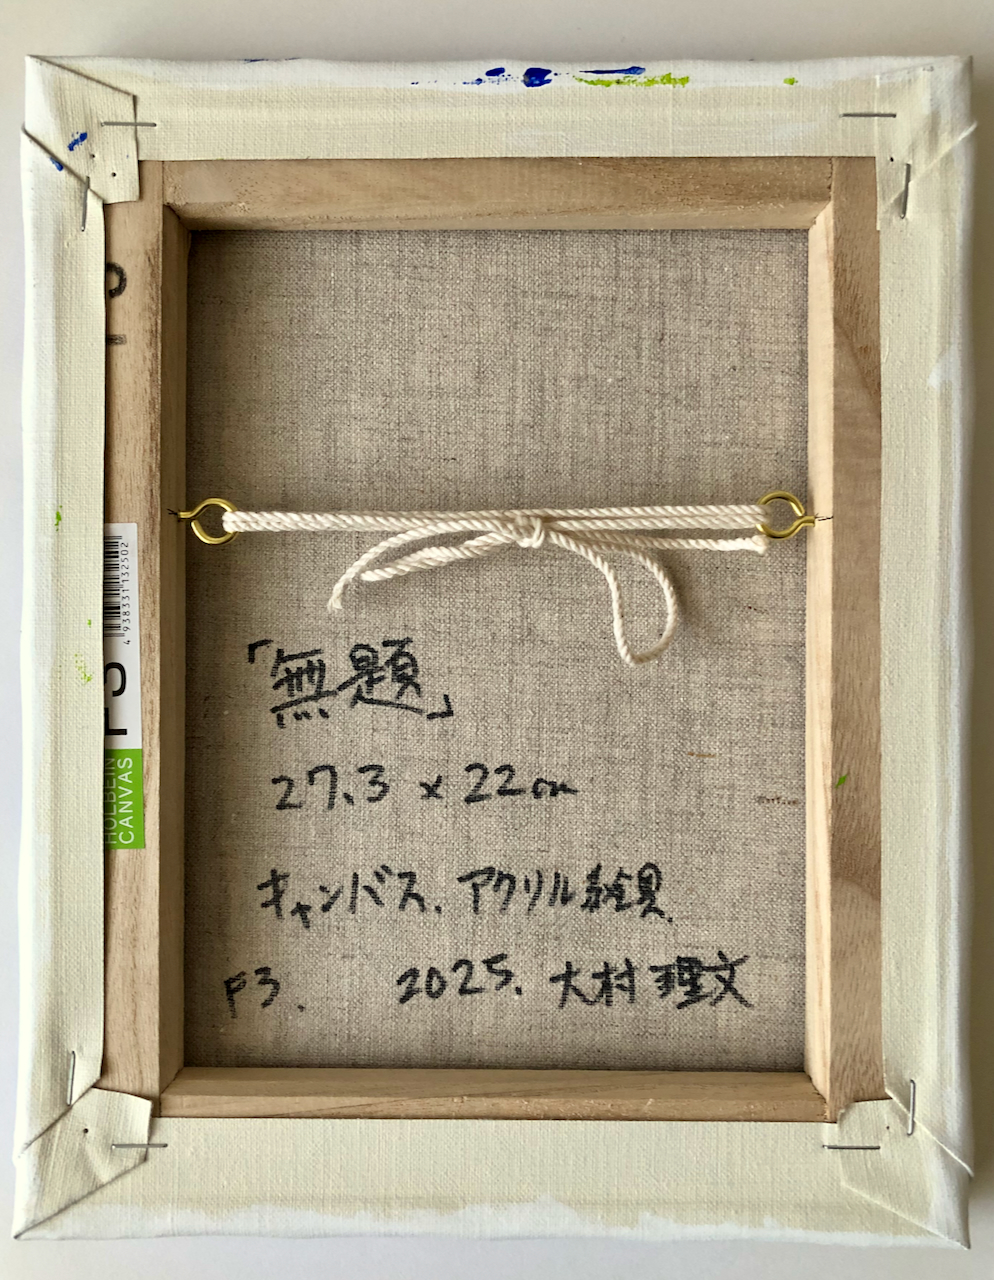 「無題」
27.3 x 22cm
キャンバス. アクリル絵具.
F3. 2025. 大村 理文
4 938331 132502
F3
HOLBEIN
CANVAS